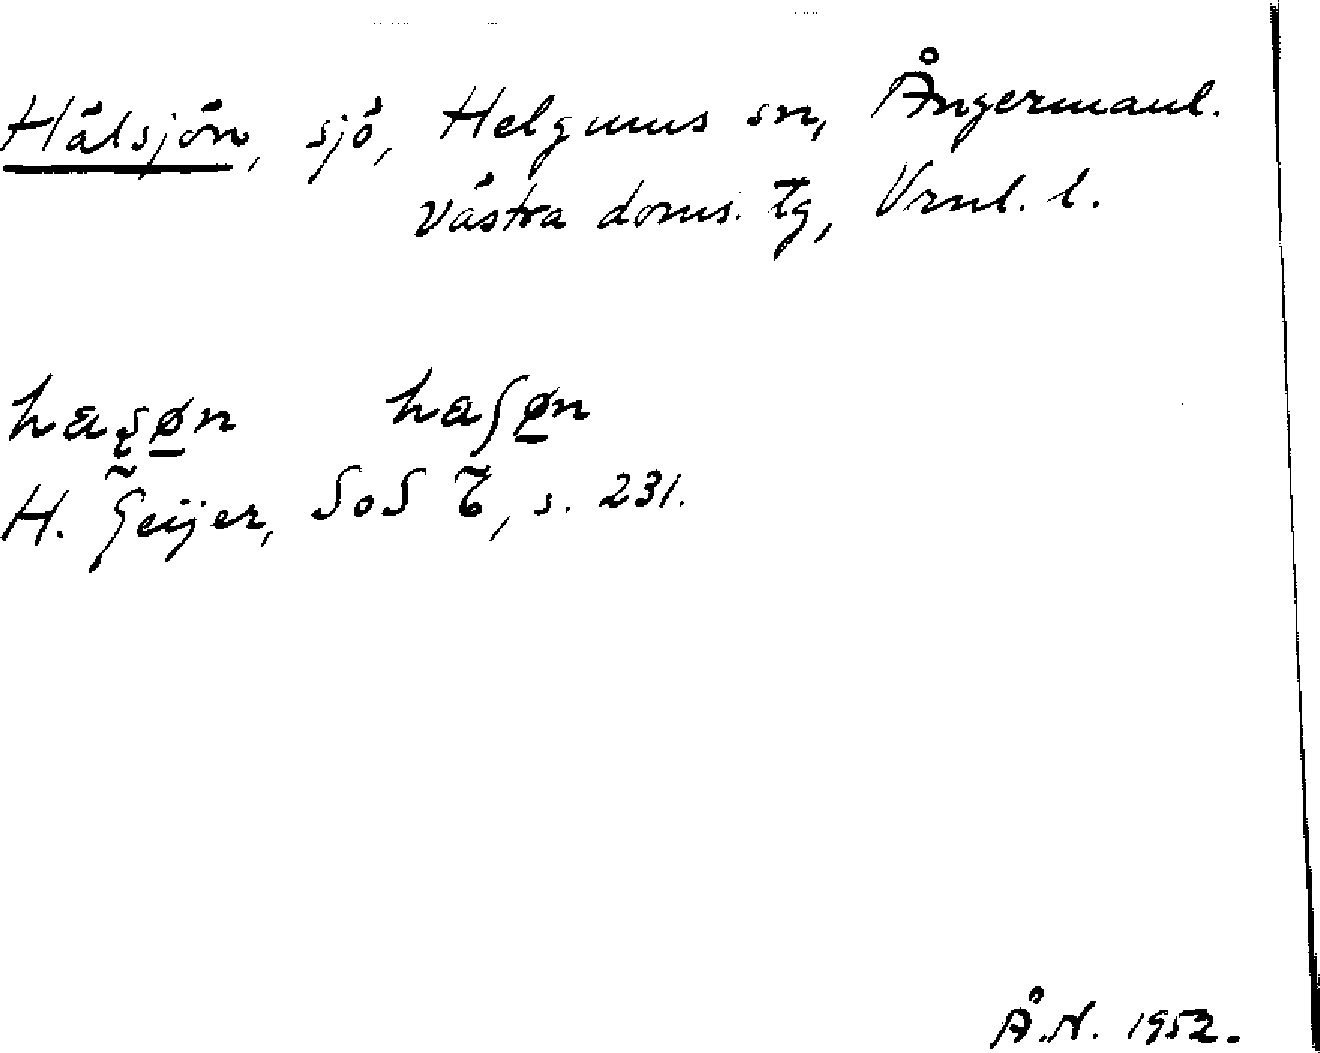 Hälsjön, sjö, Helgums sn, Ångermanl.
västra doms. tg, Vrnl. l.
haʂøn haʃøn
H. Geijer, SoS 6, s. 231.
Å.N. 1952.